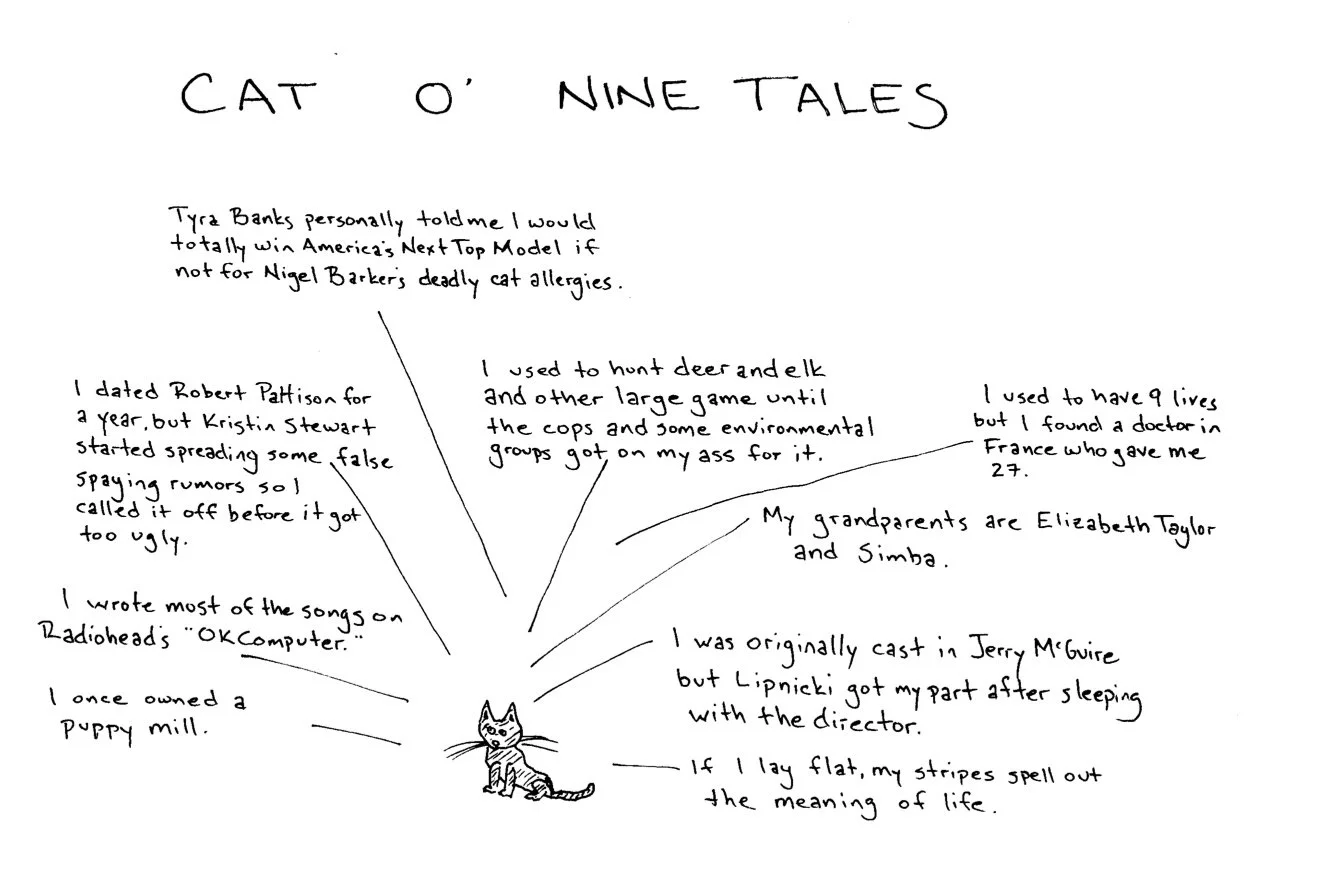 CAT O' NINE TALES
Tyra Banks personally told me I would
totally win America's Next Top Model if
not for Nigel Barker's deadly cat allergies.
I dated Robert Pattison for
a year, but Kristin Stewart
started spreading some false
spaying rumors so I
called it off before it got
too ugly.
I used to hunt deer and elk
and other large game until
the cops and some environmental
groups got on my ass for it.
I used to have 9 lives
but I found a doctor in
France who gave me
27.
My grandparents are Elizabeth Taylor
and Simba.
I wrote most of the songs on
Radiohead's "OK Computer."
I was originally cast in Jerry McGuire
but Lipnicki got my part after sleeping
with the director.
I once owned a
puppy mill.
If I lay flat, my stripes spell out
the meaning of life.